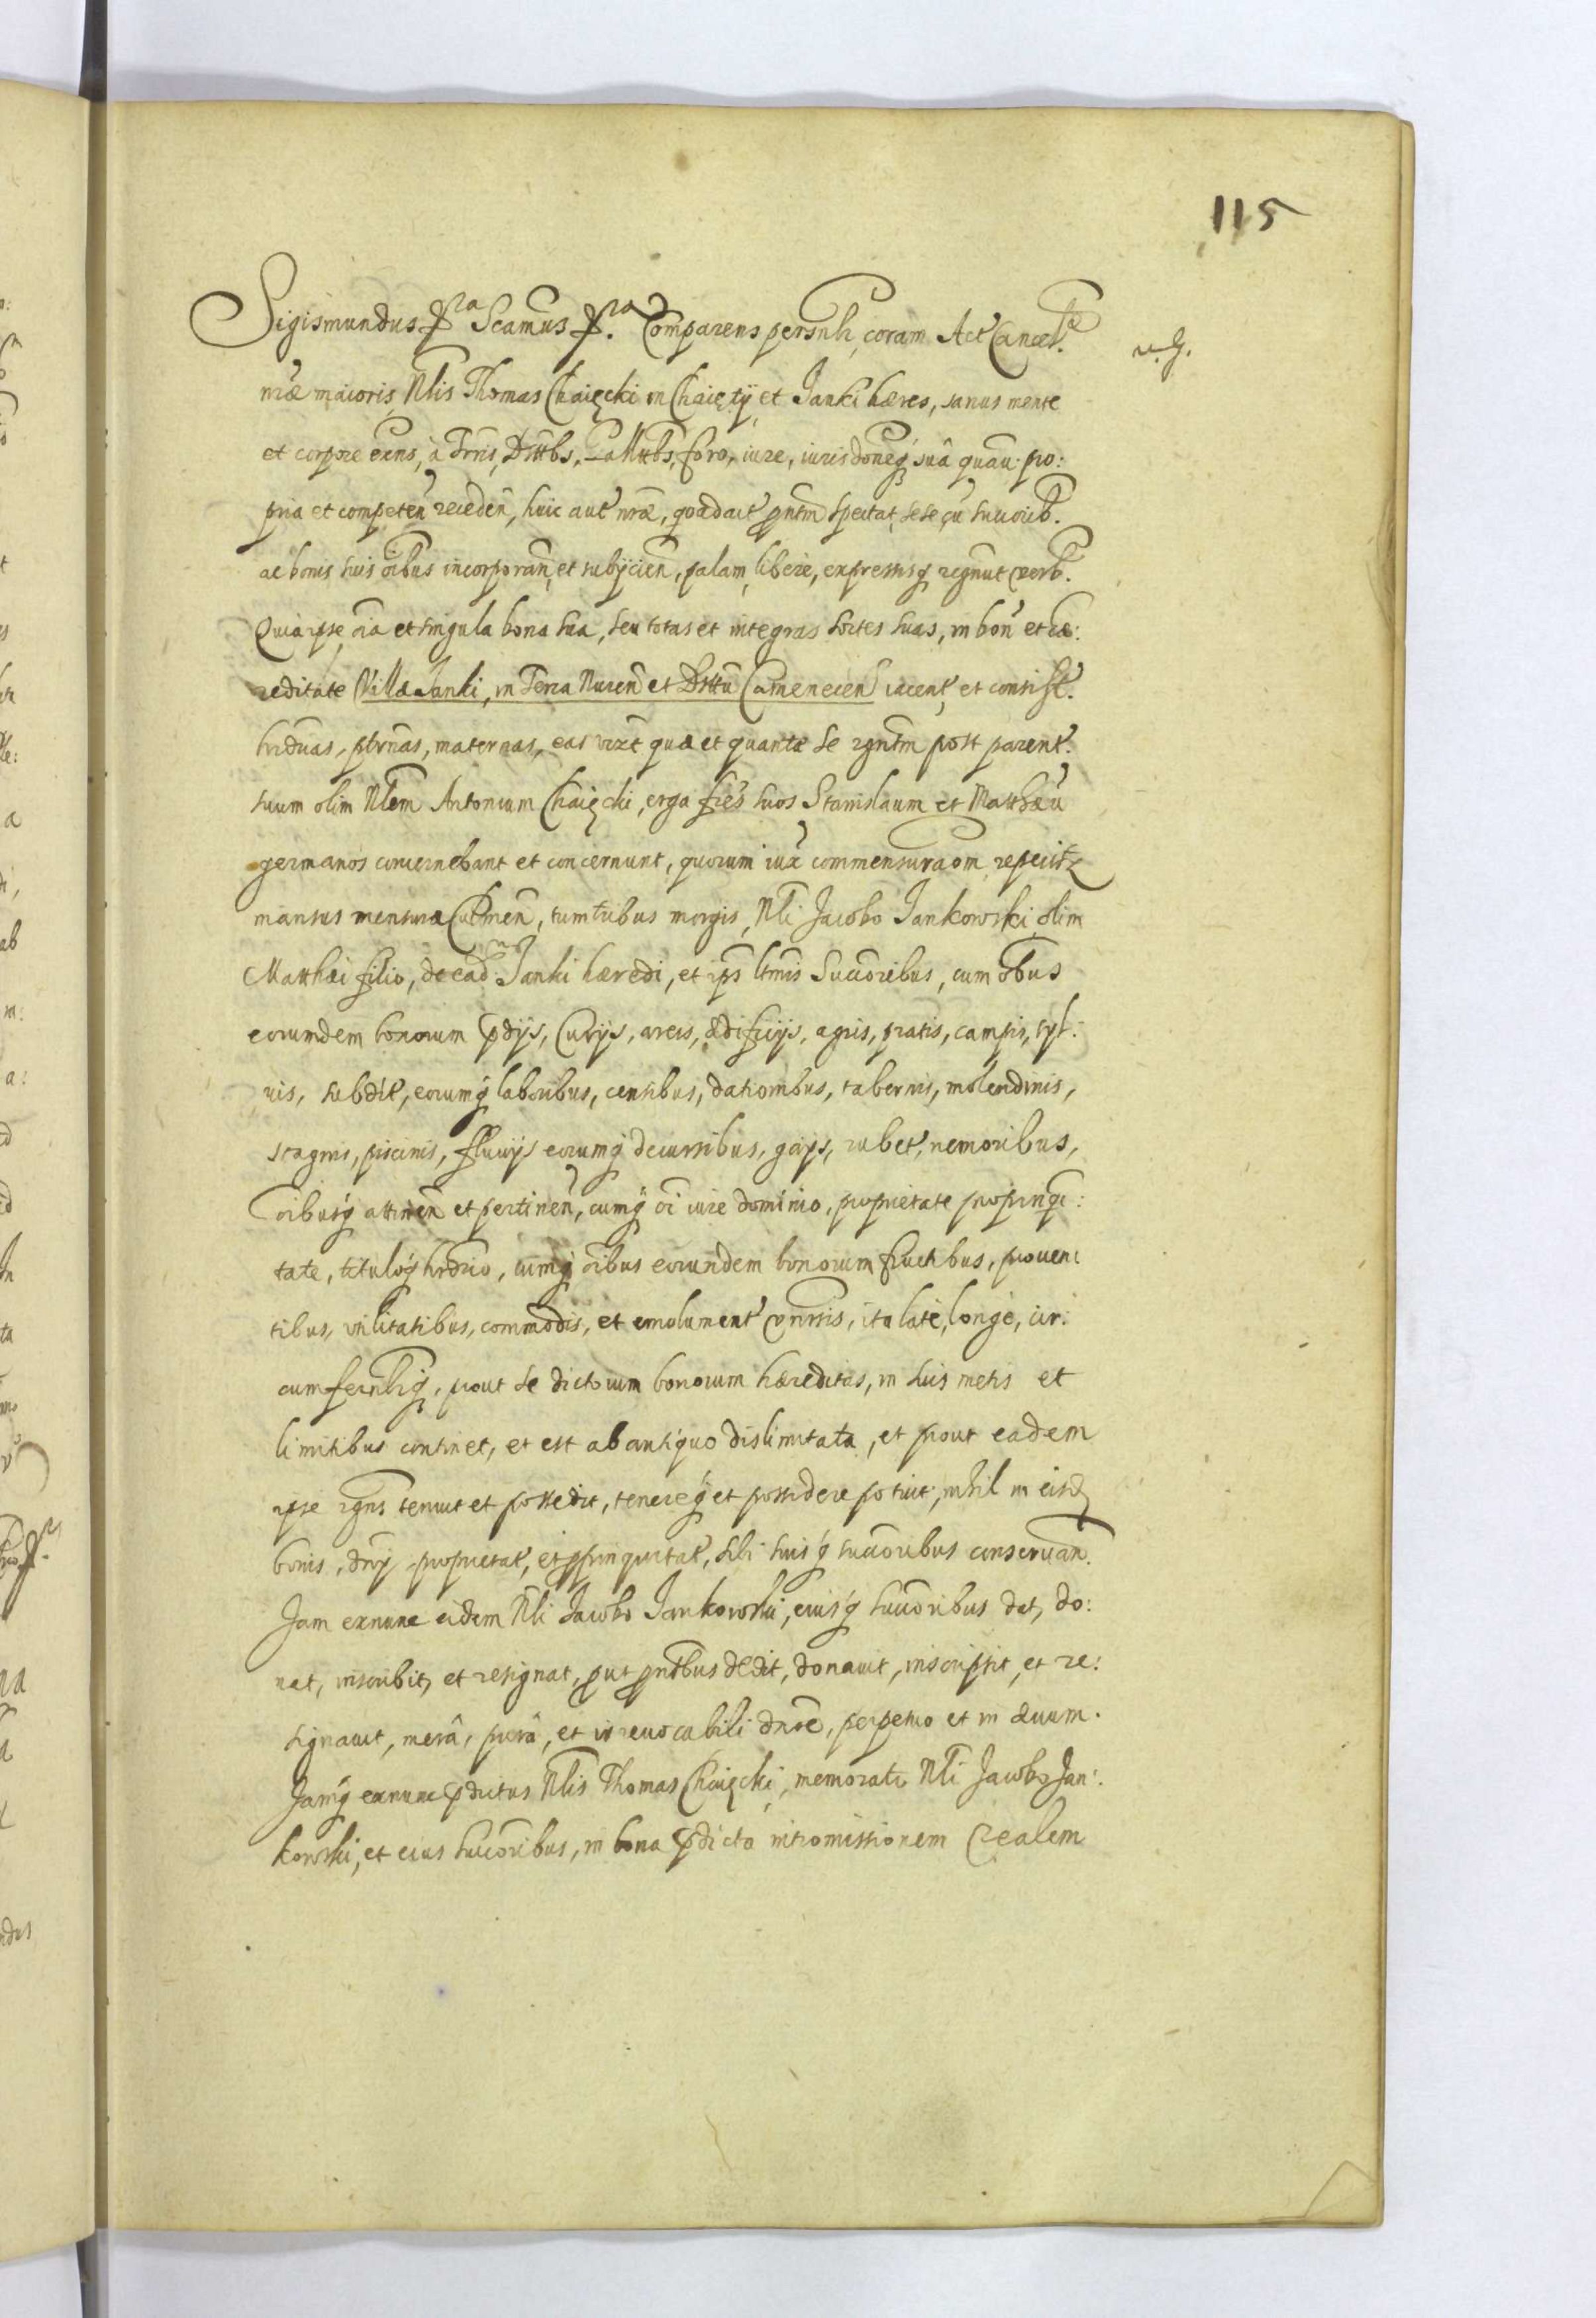 115
Sigismundus &ra Scamus &ra. Comparens persnlr, coram Act Cancel.
nrae maioris, Nlis Thomas Chaięcki in Chaięty et Janki haeres, sanus mente
et corpore exns, à Trris, Dsttbs, Pallttbs, foro, iure, iurisdoneq suâ quau: pro:
pria et competen receden, huic aut nrae, qoad act pntm spectat, sese cu succorib.
ac bonis suis oibus incorporan, et subijcien, palam, libere, expressisq regnuit verb.
Quia ipse oia et singula bona sua, seu totas et integras sortes suas, in bon et hae:
reditate Villae Janki, in Terra Nuren et Dsttu Camenecen iacent, et consist.
hrduas, ptrnas, maternas, eas vizt quae et quantae se rgntm post parent.
suum olim Nlem Antonium Chaięcki, erga fres suos Stanislaum et Matthaeu
germanos concernebant et concernunt, quorum iux commensuraom reperitr
mansus mensurae Culmen, cum tribus morgis, Nli Jacobo Jankowski, olim
Matthaei filio, de ead Janki haeredi, et ips ltmis succoribus, cum oibus
eorumdem bonorum pdijs, Curijs, areis, aedificijs, agris, pratis, campis, syl:
uis, subdit, eorumq laboribus, censibus, dationibus, tabernis, molendinis,
stagnis, piscinis, fluuijs eorumq decursibus, gaijs, rubet, nemoribus,
oibusq attinen et pertinen, cumq oi iure dominio, proprietate propinqui:
tate, tituloq hrdrio, cumq oibus eorundem bonorum fructibus, prouen:
tibus, vtilitatibus, commodis, et emolument vnirsis, ita late, longe, cir:
cumferntrq, prout se dictorum bonorum haereditas, in suis metis et
limitibus continet, et est ab antiquo dislimitata, et prout eadem
ipse rgns tenuit et possedit, tenereq et possidere potuit, nihil in eisd
bonis, dnij proprietat, et ppinquitat, sibi suisq succoribus conseruan.
Jam exnunc eidem Nli Jacobo Jankowski, eiusq succoribus dat, do:
nat, inscribit, et resignat, put pntbus dedit, donauit, inscripsit, et re:
signauit, merâ, purâ, et irreuocabili dnoe, perpetuo et in aeuum.
Jamq exnunc pdictus Nlis Thomas Chaięcki, memorato Nli Jacobo Jan:
kowski, et eius succoribus, in bona pdicta intromissionem realem